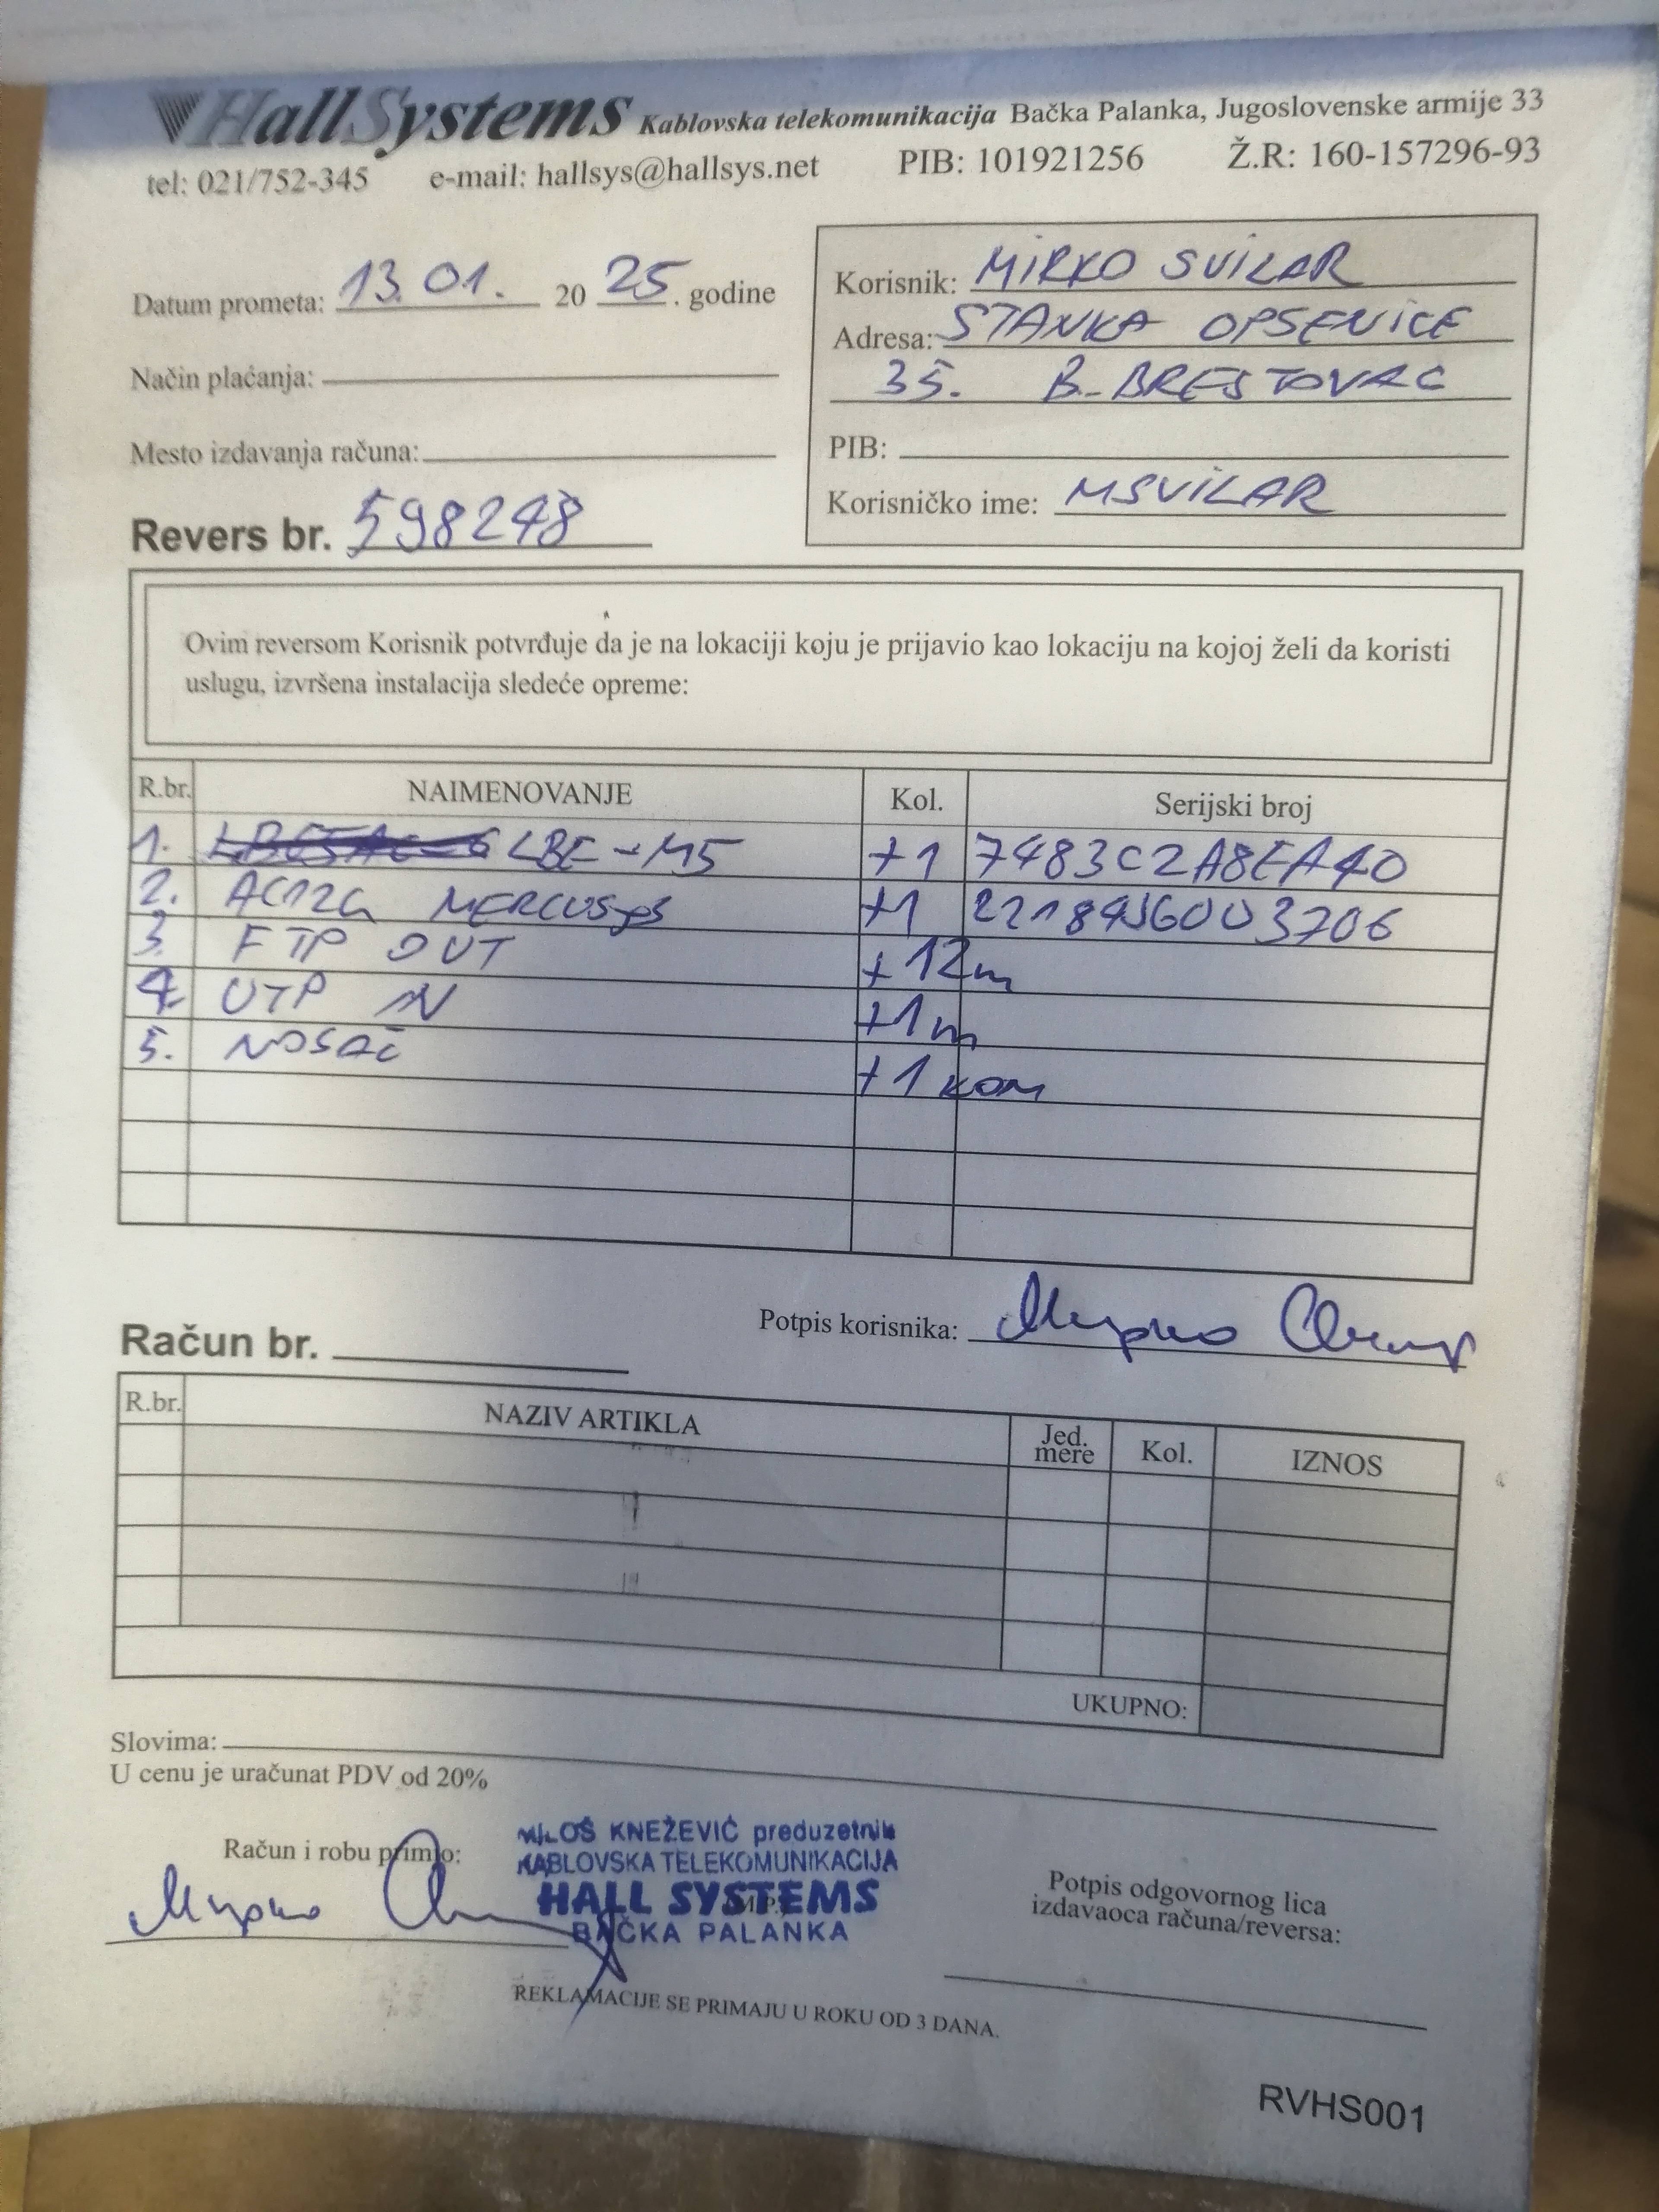 HallSystems Kablovska telekomunikacija Bačka Palanka, Jugoslovenske armije 33
tel: 021/752-345 e-mail: hallsys@hallsys.net PIB: 101921256 Ž.R: 160-157296-93
Datum prometa: 13.01. 20 25. godine
Način plaćanja:
Mesto izdavanja računa:
Revers br. 598248
Korisnik: MIRKO SVILAR
Adresa: STANKA OPSENICE
35. B. BRESTOVAC
PIB:
Korisničko ime: MSVILAR
Ovim reversom Korisnik potvrđuje da je na lokaciji koju je prijavio kao lokaciju na kojoj želi da koristi
uslugu, izvršena instalacija sledeće opreme:
R.br. NAIMENOVANJE Kol. Serijski broj
1. LBE-M5 +1 7483C2A8EA40
2. AC12G MERCUSYS +1 22184J6003706
3. FTP OUT +12m
4. UTP IN +1m
5. NOSAČ +1 kom
Potpis korisnika: Мирко Свилар
Račun br.
R.br. NAZIV ARTIKLA Jed. mere Kol. IZNOS
UKUPNO:
Slovima:
U cenu je uračunat PDV od 20%
Račun i robu primio:
Мирко
MILOŠ KNEŽEVIĆ preduzetnik
KABLOVSKA TELEKOMUNIKACIJA
HALL SYSTEMS
M.P.
BAČKA PALANKA
Potpis odgovornog lica
izdavaoca računa/reversa:
REKLAMACIJE SE PRIMAJU U ROKU OD 3 DANA.
RVHS001